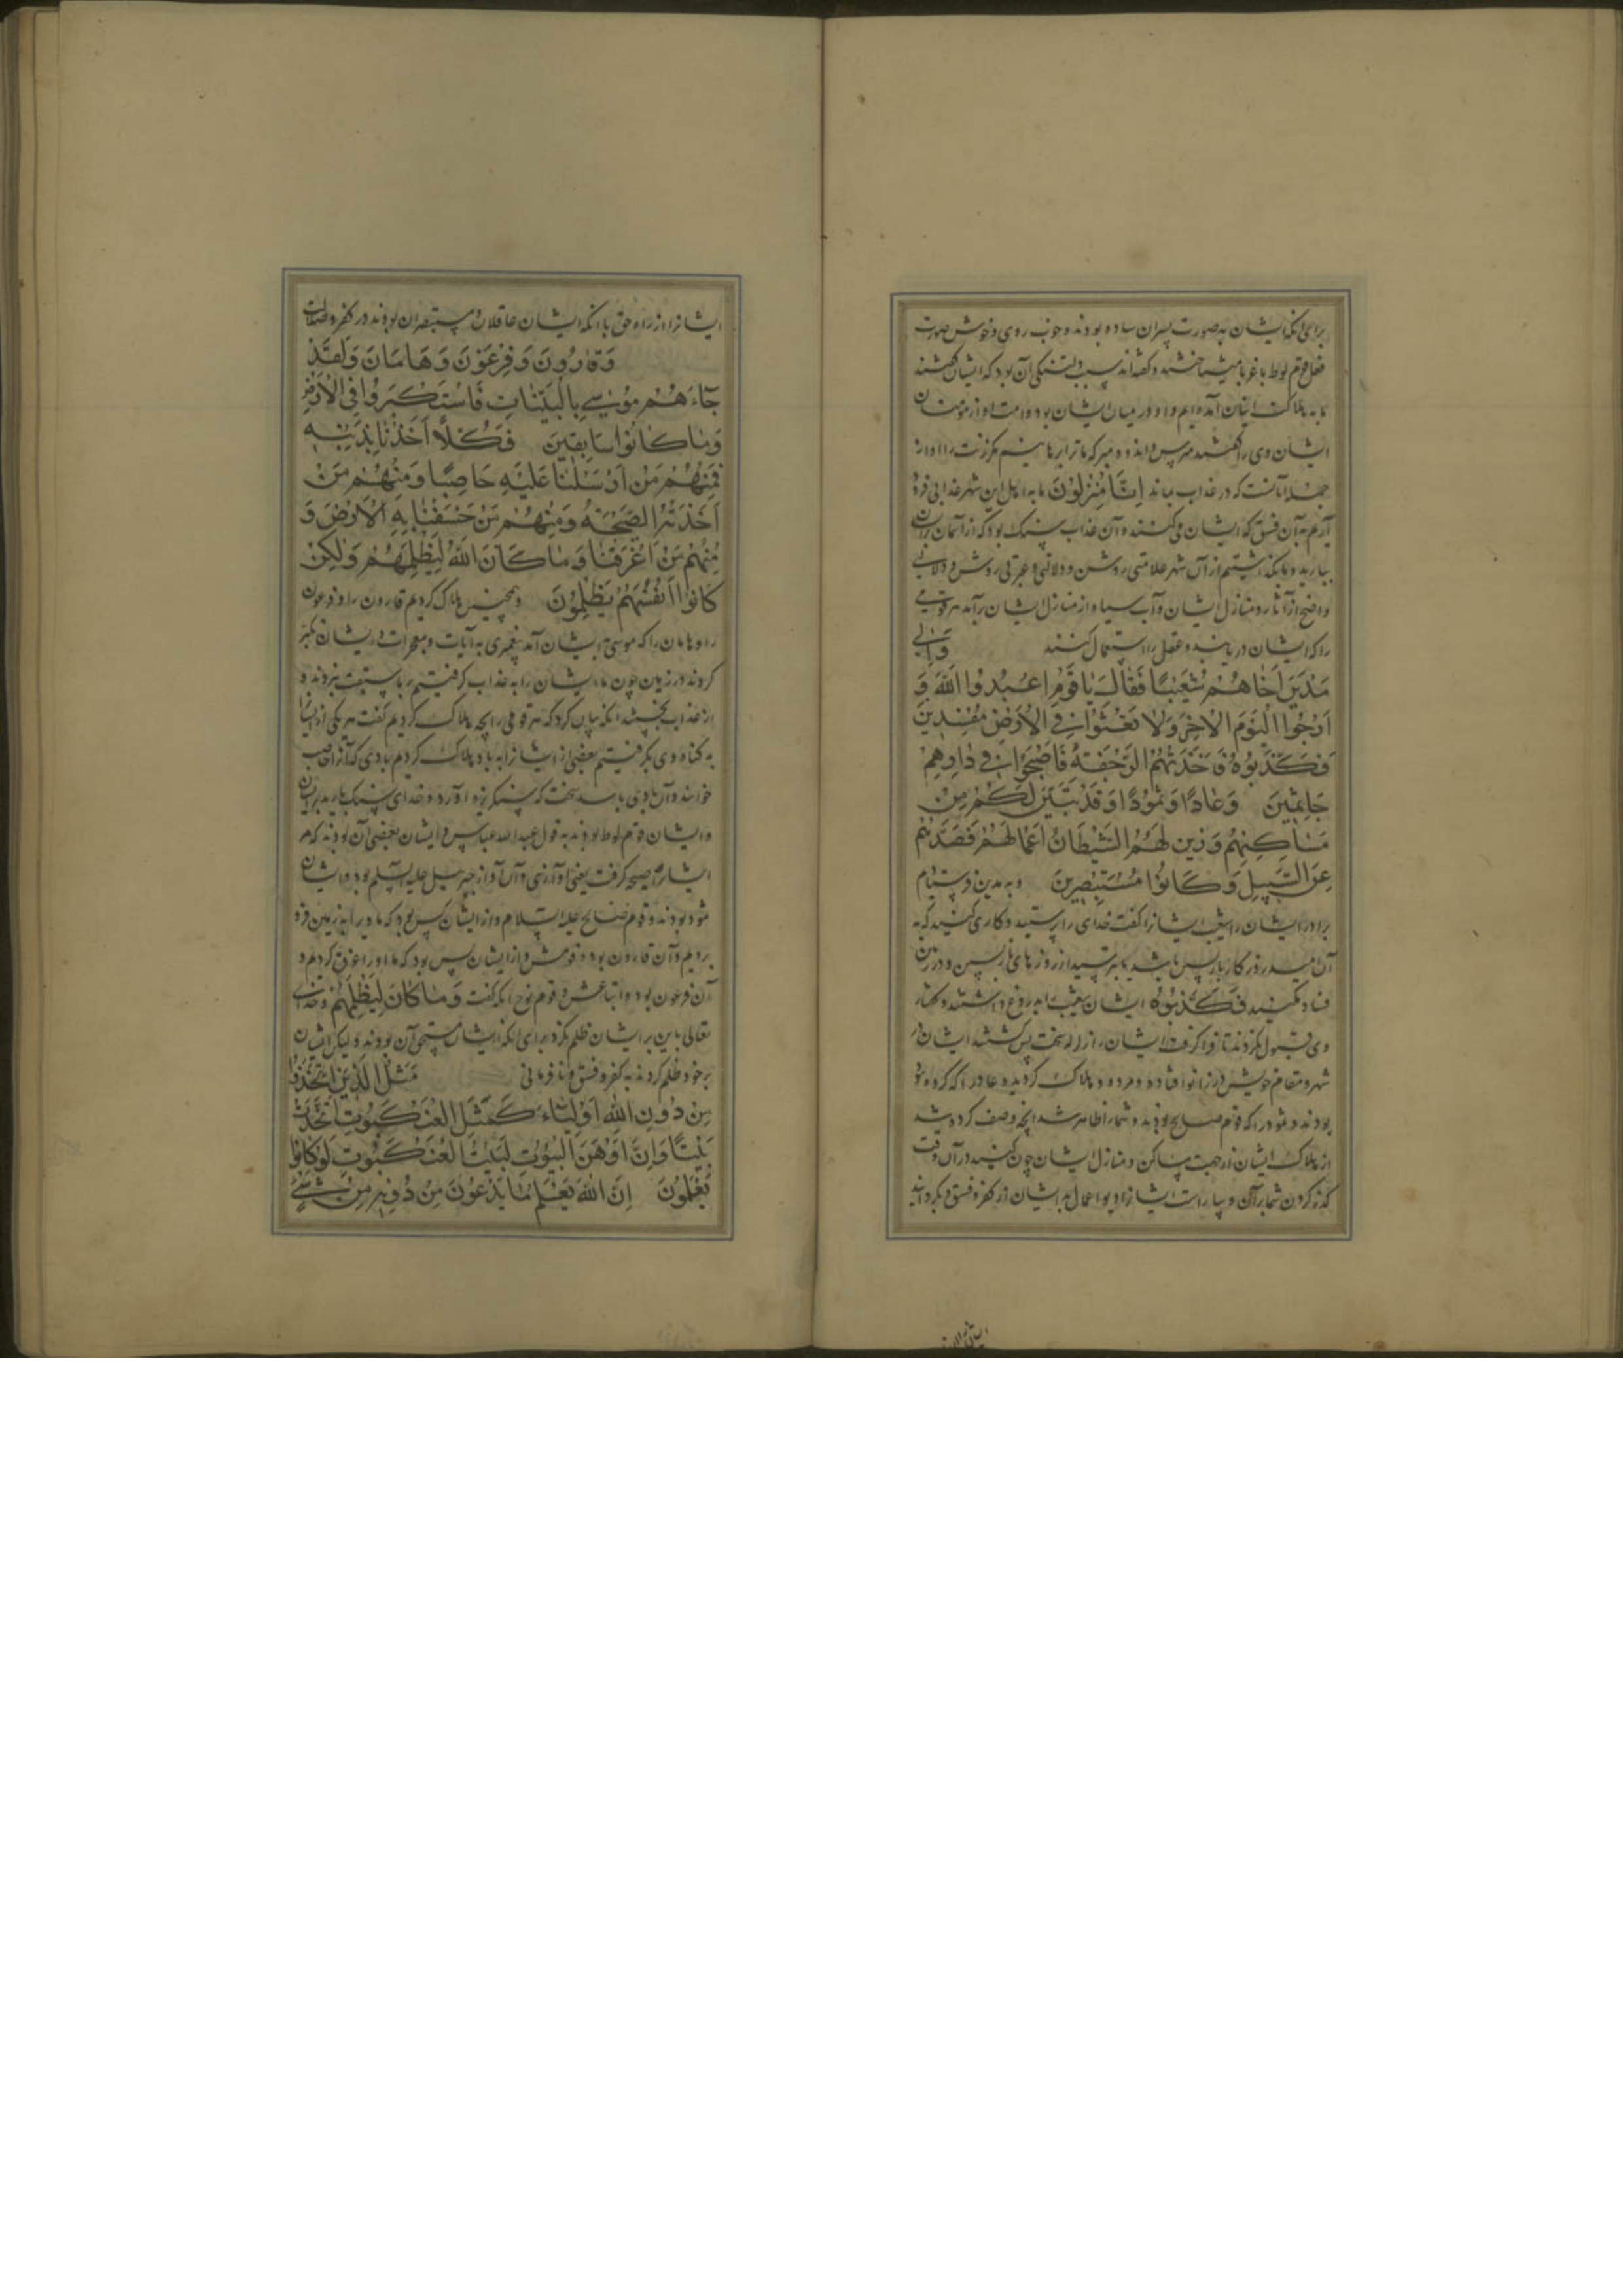 برای آنکه ایشان به صورت پسران ساده بودند و خوب روی و خوش صورت
فعل قوم لوط با غربا میشناختند و گفته‌اند سبب دلتنگی آن بود که ایشان گفتند
ما به هلاکت اینان آمده‌ایم و او در میان ایشان بود و امت او از مؤمنان
ایشان وی را گفتند مترس و اندوه مبر که ما ترا برهانیم مگر زنت را او از
جمله آنانست که در عذاب بماند اِنَّا مُنْزِلُونَ ما به اهل این شهر عذابی فرو
آریم به آن فسق که ایشان می‌کنند و آن عذاب سنگ بود که از آسمان برایشان
ببارید و ما بگذاشتیم از آن شهر علامتی روشن و دلالتی و عبرتی روشن و
واضح از آثار و منازل ایشان و آب سیاه از منازل ایشان برآمد هر قومی
را که ایشان دریابند و عقل را استعمال کنند وَاِلٰی
مَدْیَنَ اَخَاهُمْ شُعَیْبًا فَقَالَ یَا قَوْمِ اعْبُدُوا اللّٰهَ وَ
اَرْجُوا الْیَوْمَ الْاٰخِرَ وَلَا تَعْثَوْا فِی الْاَرْضِ مُفْسِدِینَ
فَکَذَّبُوهُ فَاَخَذَتْهُمُ الرَّجْفَةُ فَاَصْبَحُوا فِی دَارِهِمْ
جَاثِمِینَ وَعَادًا وَثَمُودًا وَقَدْ تَبَیَّنَ لَکُمْ مِنْ
مَسَاکِنِهِمْ وَزَیَّنَ لَهُمُ الشَّیْطَانُ اَعْمَالَهُمْ فَصَدَّهُمْ
عَنِ السَّبِیلِ وَکَانُوا مُسْتَبْصِرِینَ و به مدین فرستادیم
برادر ایشان را شعیب ایشانرا گفت خدای را پرستید و کاری کنید که به
آن امید روزگار بازپسین باشد یا بترسید از روزهای بازپسین و در زمین
فساد مکنید فَکَذَّبُوهُ ایشان شعیب را بدروغ داشتند و گفتار
وی قبول نکردند تا فراگرفت ایشان را زلزله سخت پس گشتند ایشان در
شهر و مقام خویش در زانو افتاده و مرده و هلاک گردیده و عاد را که گروه هود
بودند و ثمود را که قوم صالح بودند و شما را ظاهر شد آنچه وصف کرده شد
از هلاک ایشان از جهت مساکن و منازل ایشان چون گنید در آن وقت
گذر کردن شما بر آن و بیاراست ایشانرا دیو اعمال بد ایشان از کفر و فسق و بگردانید
ایشانرا از راه حق با آنکه ایشان عاقلان و مستبصران بودند در کفر و ضلالت
وَقَارُونَ وَفِرْعَوْنَ وَهَامَانَ وَلَقَدْ
جَاءَهُمْ مُوسٰی بِالْبَیِّنَاتِ فَاسْتَکْبَرُوا فِی الْاَرْضِ
وَمَا کَانُوا سَابِقِینَ فَکُلًّا اَخَذْنَا بِذَنْبِهِ
فَمِنْهُمْ مَنْ اَرْسَلْنَا عَلَیْهِ حَاصِبًا وَمِنْهُمْ مَنْ
اَخَذَتْهُ الصَّیْحَةُ وَمِنْهُمْ مَنْ خَسَفْنَا بِهِ الْاَرْضَ وَ
مِنْهُمْ مَنْ اَغْرَقْنَا وَمَا کَانَ اللّٰهُ لِیَظْلِمَهُمْ وَلٰکِنْ
کَانُوا اَنْفُسَهُمْ یَظْلِمُونَ و همچنین هلاک کردیم قارون را و فرعون
را و هامان را که موسی به ایشان آمد پیغمبری به آیات و معجزات و ایشان تکبر
کردند در زمین چون ما ایشان را به عذاب گرفتیم بر ما سبقت نبردند و
از عذاب نجستند آنکه بیان کرد که هر قومی را بچه هلاک کردیم گفت هر یکی از ایشان
به گناه وی بگرفتیم بعضی از ایشانرا به باد هلاک کردیم بادی که آنرا حاصب
خوانند و آن بادی باشد سخت که سنگریزه آورد و خدای سنگ بارید بر ایشان
و ایشان قوم لوط بودند به قول عبدالله عباس و ایشان بعضی آن بودند که مر
ایشانرا صیحه گرفت یعنی آوازی و آن آواز جبرئیل علیه السلم بود و ایشان
ثمود بودند و قوم صالح علیه السلام و از ایشان کس بود که ما ویرا به زمین فرو
بردیم و آن قارون بود و قومش و از ایشان کس بود که ما او را غرق کردیم و
آن فرعون بود و اتباعش و قوم نوح آنکه گفت وَمَا کَانَ لِیَظْلِمَهُمْ و خدای
تعالی باین بر ایشان ظلم نکرد برای آنکه ایشان مستحق آن بودند و لیکن ایشان
بر خود ظلم کردند به کفر و فسق و نافرمانی مَثَلُ الَّذِینَ اتَّخَذُوا
مِنْ دُونِ اللّٰهِ اَوْلِیَاءَ کَمَثَلِ الْعَنْکَبُوتِ اتَّخَذَتْ
بَیْتًا وَاِنَّ اَوْهَنَ الْبُیُوتِ لَبَیْتُ الْعَنْکَبُوتِ لَوْ کَانُوا
یَعْلَمُونَ اِنَّ اللّٰهَ یَعْلَمُ مَا یَدْعُونَ مِنْ دُونِهِ مِنْ شَیْءٍ